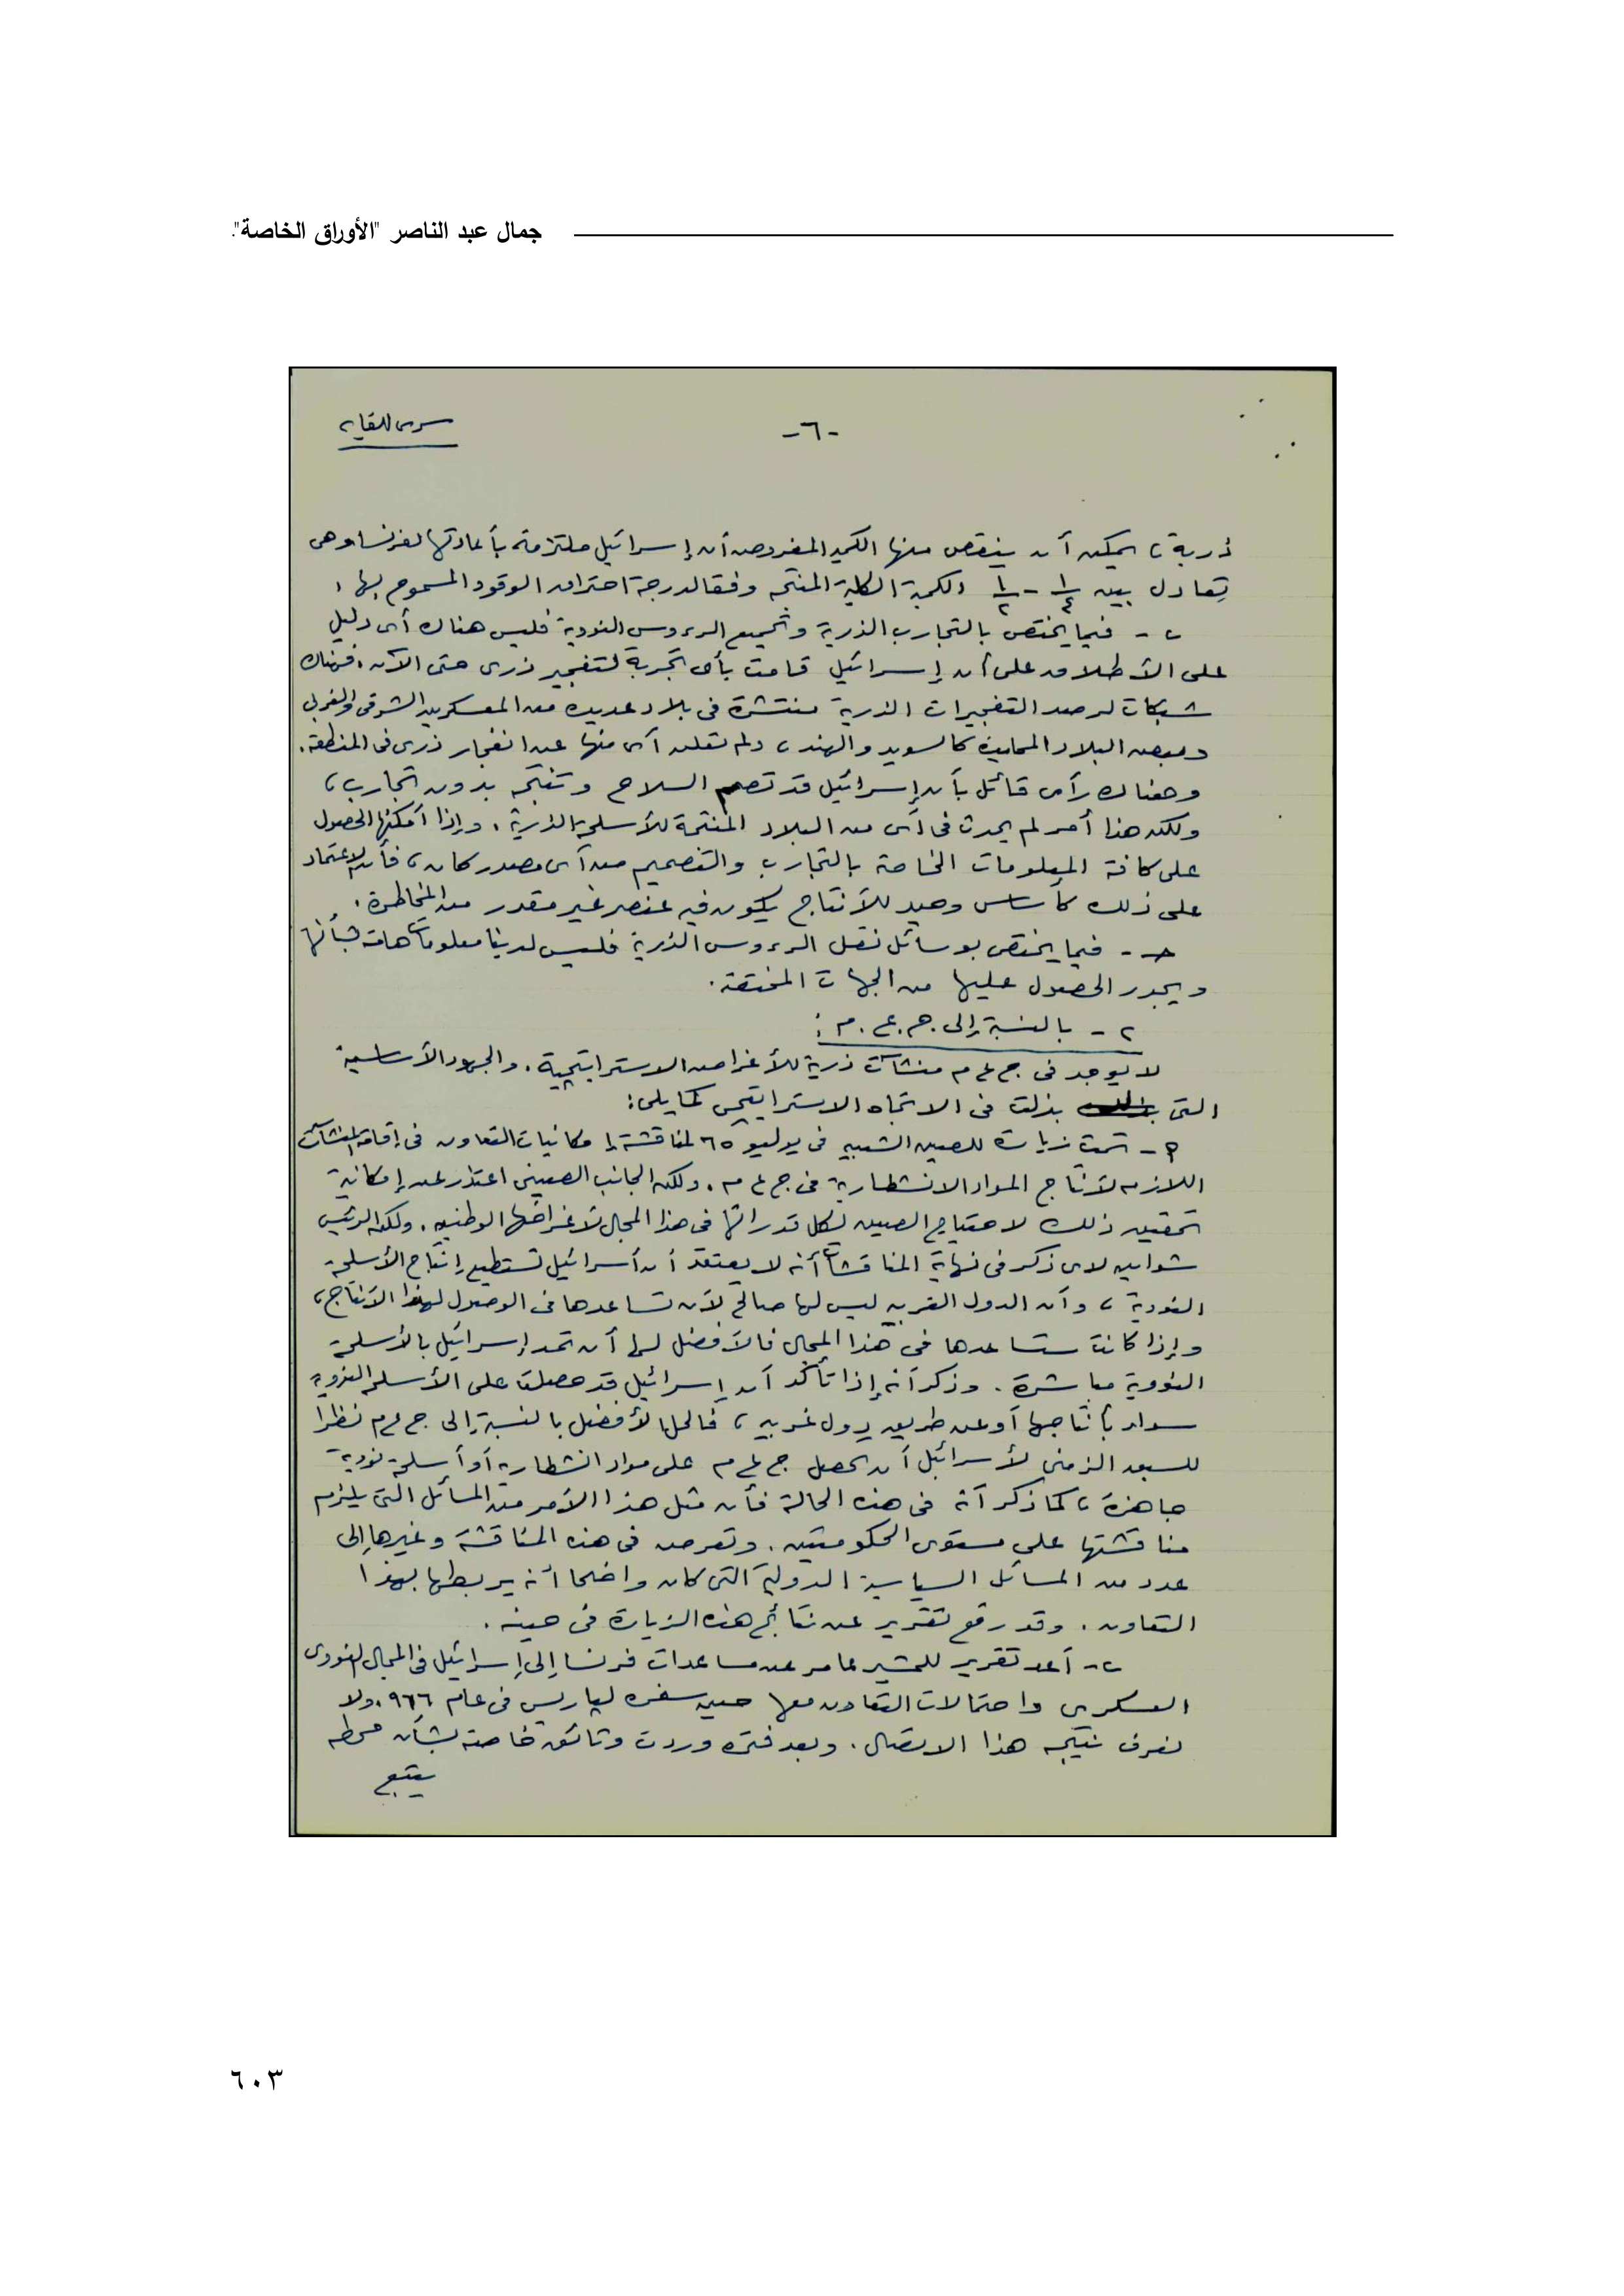 جمال عبد الناصر "الأوراق الخاصة".
سرى للغاية
-٦-
ذرية، يمكن أن ينقص منها الكمية المفروض أن إسرائيل ملتزمة بأعادتها لفرنسا وهى
تعادل بين ١/٤ - ١/٢ الكمية الكلية المنتجه وفقا لدرجة احتراق الوقود المسموح بها.
ب - فيما يختص بالتجارب الذرية وتجميع الرءوس النووية فليس هناك أى دليل
على الأطلاق على أن إسرائيل قامت بأى تجربة لتفجير ذرى حتى الآن، فهناك
شبكات لرصد التفجيرات الذرية منتشرة فى بلاد عديده من المعسكرين الشرقى والغربى
وبعض البلاد المحايدة كالسويد والهند، ولم تعلن أى منها عن انفجار ذرى فى المنطقه.
وهناك رأى قائل بأن إسرائيل قد تصمم السلاح وتنتجه بدون تجارب،
ولكن هذا أمر لم يحدث فى أى من البلاد المنتجة للأسلحة الذرية. وإذا أمكنها الحصول
على كافة المعلومات الخاصة بالتجارب والتصميم من أى مصدر كان، فأن الاعتماد
على ذلك كأساس وحيد للأنتاج يكون فيه عنصر غير مقدر من المخاطرة.
جـ - فيما يختص بوسائل نقل الرءوس الذرية فليس لدينا معلومات هامة بشأنها
ويجدر الحصول عليها من الجهات المختصة.
٢ - بالنسبة إلى ج.ع.م:
لا يوجد فى ج ع م منشآت ذرية للأغراض الاستراتيجية. والجهود الأساسية
التى بذلت فى الاتجاه الاستراتيجى كما يلى:
أ - تمت زيارة للصين الشعبيه فى يوليو ٦٥ لمناقشة إمكانيات التعاون فى إقامة المنشآت
اللازمه لأنتاج المواد الانشطارية فى ج ع م. ولكن الجانب الصينى اعتذر عن إمكانية
تحقيق ذلك لاحتياج الصين لكل قدراتها فى هذا المجال لأغراضها الوطنيه. ولكن الرئيس
شواين لاى ذكر فى نهاية المناقشات أنه لا يعتقد أن أسرائيل تستطيع إنتاج الأسلحة
النووية، وأن الدول الغربيه ليس لها صالح لأن تساعدها فى الوصول لهذا الأنتاج،
وإذا كانت ستساعدها فى هذا المجال فالأفضل لها أن تمد إسرائيل بالأسلحة
النووية مباشرة. وذكر أنه إذا تأكد أن إسرائيل قد حصلت على الأسلحة النووية
سواء بأنتاجها أو عن طريق دول غربيه، فالحل الأفضل بالنسبة إلى ج ع م نظرا
للسبق الزمنى لأسرائيل أن تحصل ج ع م على مواد انشطارية أو أسلحة نووية
جاهزة، كما ذكر أنه فى هذه الحالة فأن مثل هذا الأمر من المسائل التى يلزم
مناقشتها على مستوى الحكومتين. وتعرض فى هذه المناقشة وغيرها إلى
عدد من المسائل السياسية الدولية التى كان واضحا أنه يربطها بهذا
التعاون. وقد رفع تقرير عن نتائج هذه الزيارة فى حينه.
ب - أعد تقرير للمشير عامر عن مساعدات فرنسا إلى إسرائيل فى المجال النووى
العسكرى واحتمالات التعاون معها حين سفره لباريس فى عام ٩٦٦. ولا
نعرف نتيجه هذا الاتصال. وبعد فتره وردت وثائق خاصة بشأن محطه
يتبع
٦٠٣